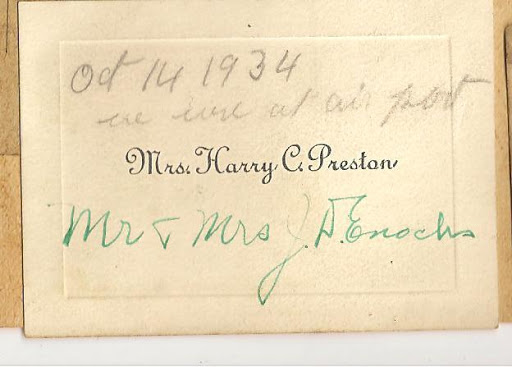 Oct 14 1934
we were at air port
Mrs. Harry C. Preston
Mr & Mrs J. D. Enochs